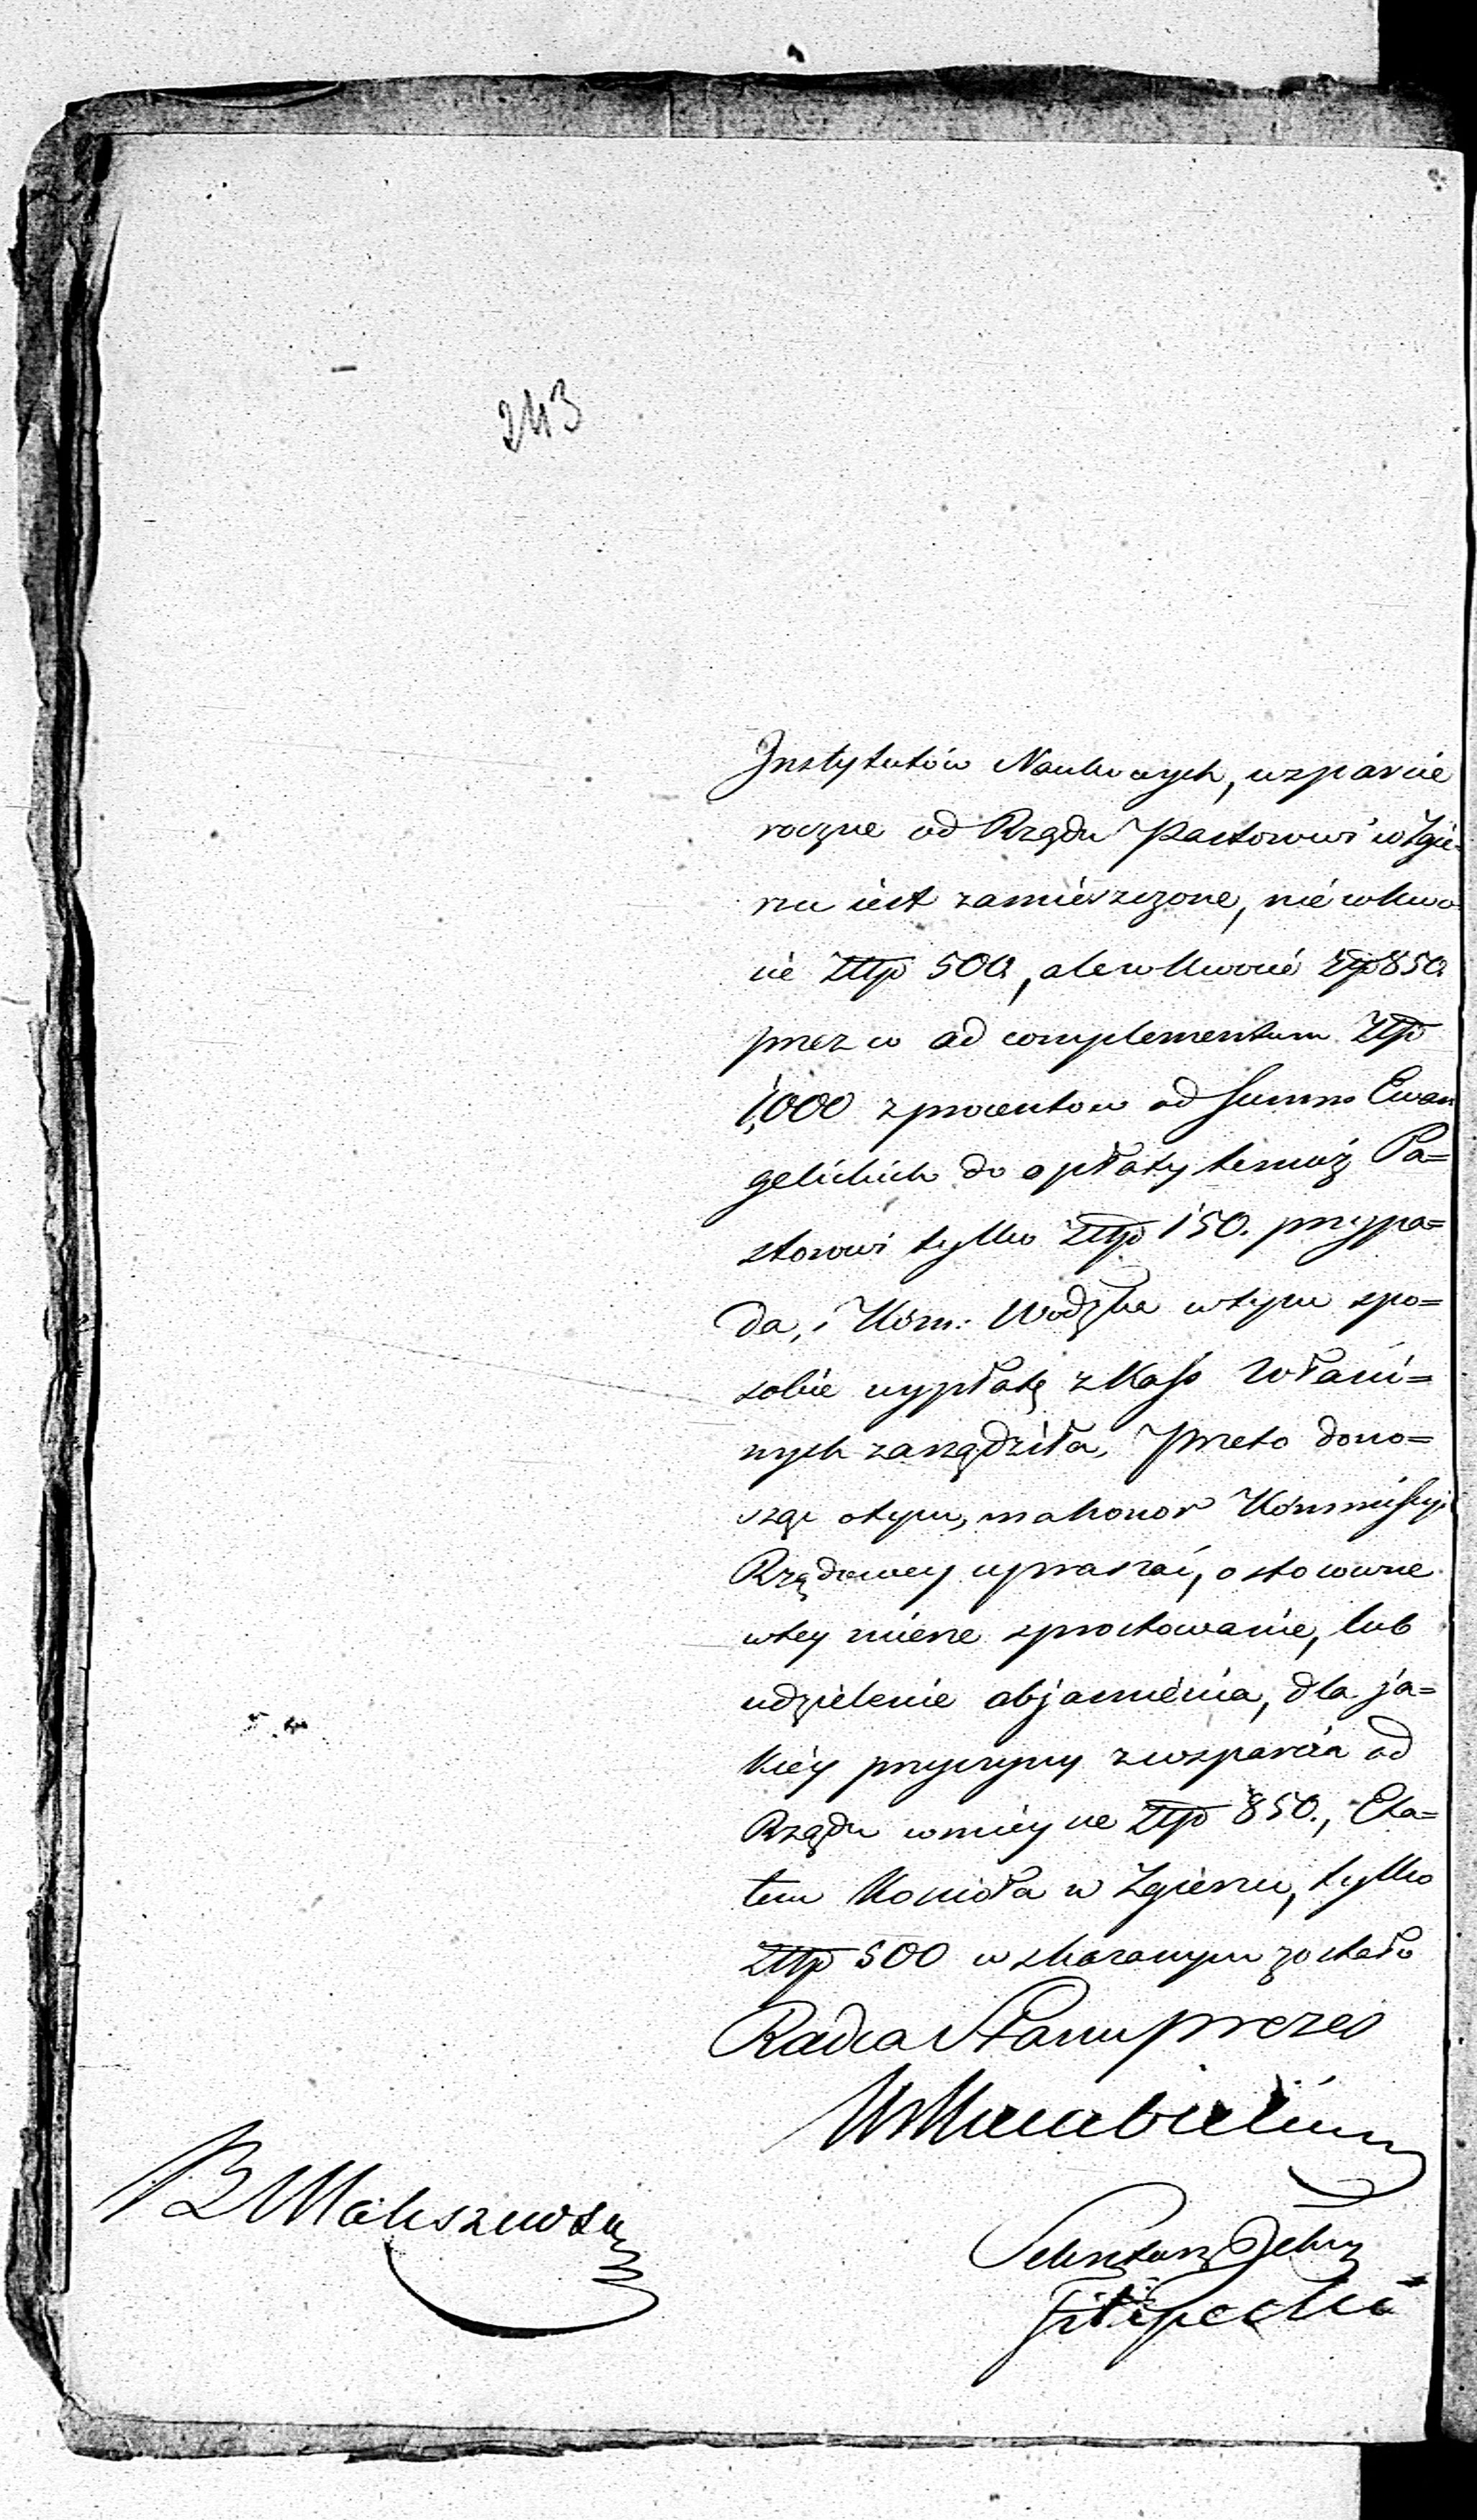 243
Instytutów Naukowych, wsparcie
roczne od Rządu Pastorowi w Zgie-
rzu iest zamieszczone, nie w kwo
cie Złtp 500, ale w kwocie Złp 850
przez co ad complementum Złtp
1,000 z procentow od Summ Ewan
gelickich do opłaty temuż Pa=
storowi tylko Złtp 150. przypa=
da, i Kom: Wodzka w tym spo=
sobie wypłatę z Kass Właści=
wych zarządziła, Przeto dono=
sząc o tym, ma honor Kommissyi
Rządowey upraszać, o stosowne
w tey mierze sprostowanie, lub
udzielenie objasnienia, dla ja=
kiéy przyczyny z wsparcia od
Rządu w mieyśce Złtp 850., Eta=
tem Kościoła w Zgierzu, tylko
Złtp 500 wskazanym zostało
Radca Stanu prezes
Sekretarz Jelny
Filipecki
B Maliszewski